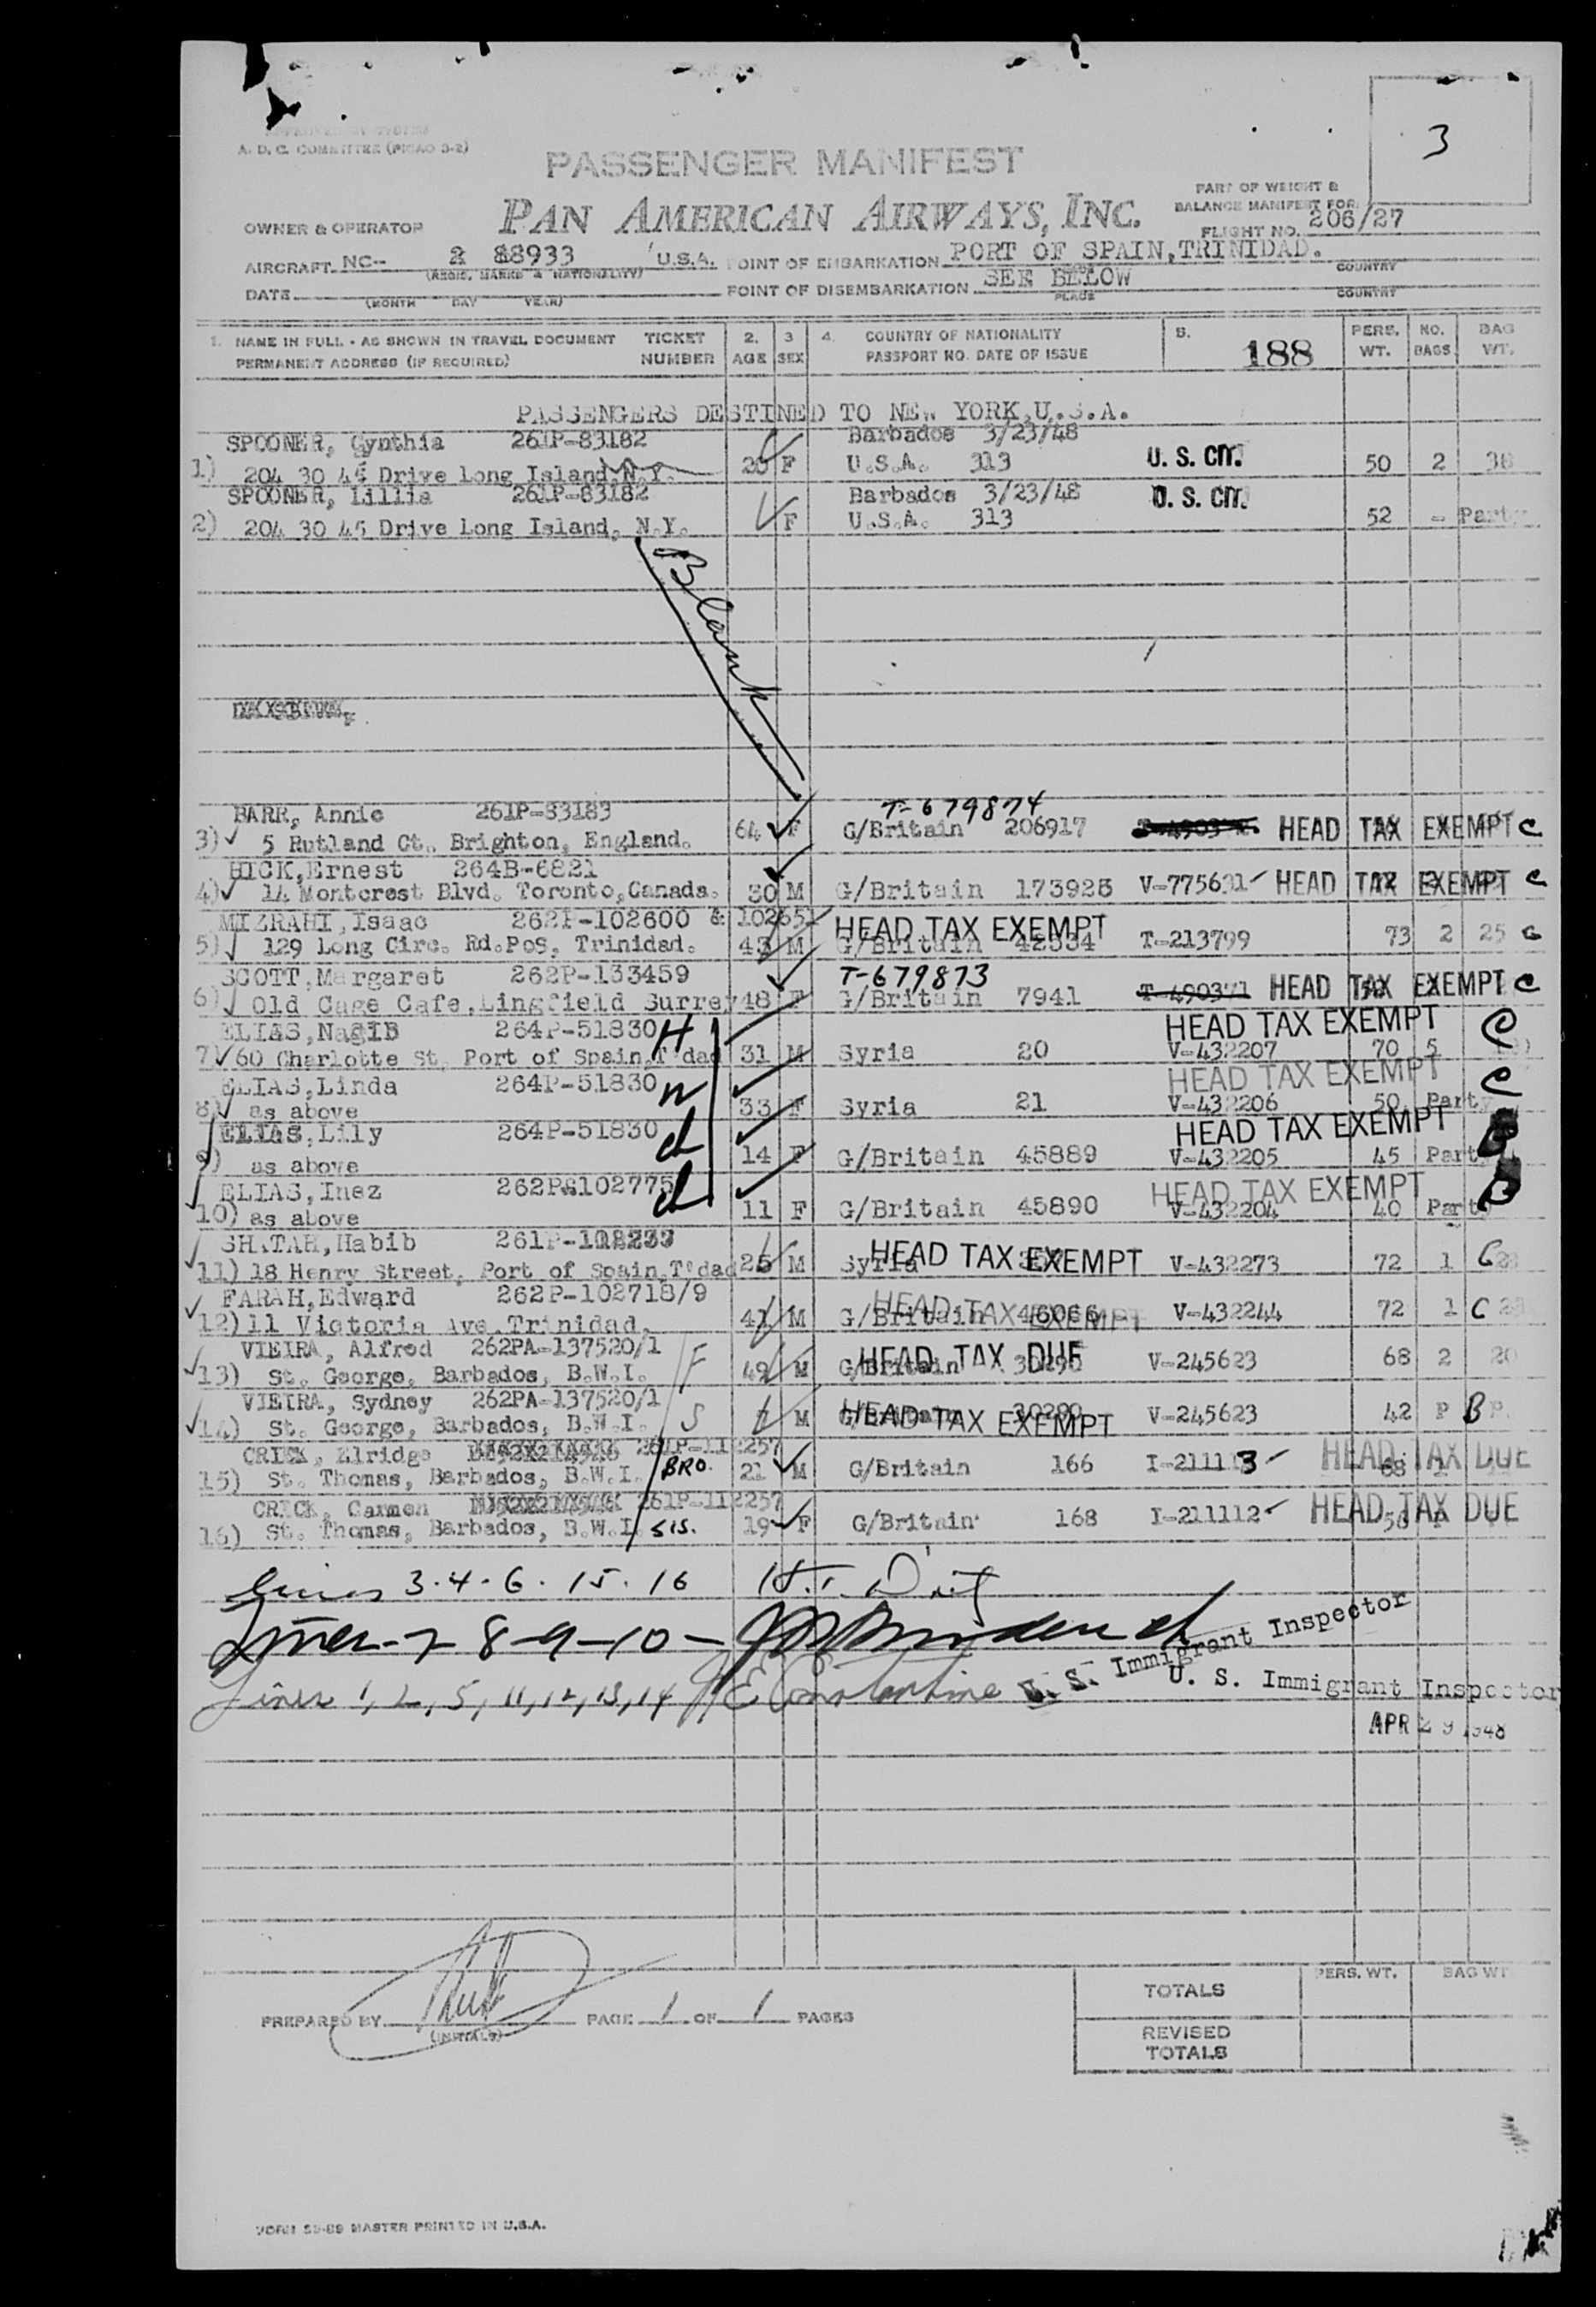 A. D. C. COMMITTEE (PICAO 3-2)
3
PASSENGER MANIFEST
PART OF WEIGHT &
BALANCE MANIFEST FOR
OWNER & OPERATOR PAN AMERICAN AIRWAYS, INC. FLIGHT NO. 206/27
AIRCRAFT NC-- 88933 U.S.A. POINT OF EMBARKATION PORT OF SPAIN, TRINIDAD.
(REGIS. MARKS & NATIONALITY) COUNTRY
DATE POINT OF DISEMBARKATION SEE BELOW
(MONTH DAY YEAR) PLACE COUNTRY
1. NAME IN FULL - AS SHOWN IN TRAVEL DOCUMENT TICKET 2. 3 4. COUNTRY OF NATIONALITY 5. PERS. NO. BAG
PERMANENT ADDRESS (IF REQUIRED) NUMBER AGE SEX PASSPORT NO. DATE OF ISSUE 188 WT. BAGS WT.
PASSENGERS DESTINED TO NEW YORK, U.S.A.
SPOONER, Cynthia 261P-83182 Barbados 3/23/48
1) 204 30 45 Drive Long Island, N.Y. 20 F U.S.A. 313 U. S. CIT. 50 2 38
SPOONER, Lillia 261P-83182 Barbados 3/23/48
2) 204 30 45 Drive Long Island, N.Y. F U.S.A. 313 U. S. CIT. 52 - Party
Blank
BARR, Annie 261P-83183 T-679874
3) 5 Rutland Ct., Brighton, England. 64 F G/Britain 206917 HEAD TAX EXEMPT C
HICK, Ernest 264B-6821
4) 14 Montcrest Blvd. Toronto, Canada. 30 M G/Britain 173928 V-775631 HEAD TAX EXEMPT C
MIZRAHI, Isaac 262P-102600 & 102651 HEAD TAX EXEMPT
5) 129 Long Circ. Rd. POS, Trinidad. 43 M G/Britain 42534 T-213799 73 2 25 C
SCOTT, Margaret 262P-133459 T-679873
6) Old Cage Cafe, Lingfield Surrey 48 F G/Britain 7941 T-490371 HEAD TAX EXEMPT C
ELIAS, Nagib 264P-51830 H HEAD TAX EXEMPT C
7) 60 Charlotte St, Port of Spain, T'dad 31 M Syria 20 V-432207 70 5
ELIAS, Linda 264P-51830 W HEAD TAX EXEMPT C
8) as above 33 F Syria 21 V-432206 50 Party
ELIAS, Lily 264P-51830 ch HEAD TAX EXEMPT B
9) as above 14 F G/Britain 45889 V-432205 45 Party
ELIAS, Inez 262P-102775 ch HEAD TAX EXEMPT B
10) as above 11 F G/Britain 45890 V-432204 40 Party
SHATAH, Habib HEAD TAX EXEMPT
11) 18 Henry Street, Port of Spain, T'dad 25 M Syria V-432273 72 1 C
FARAH, Edward 262P-102718/9 HEAD TAX EXEMPT
12) 11 Victoria Ave Trinidad. 41 M G/Britain 46066 V-432244 72 1 C
VIEIRA, Alfred 262PA-137520/1 F HEAD TAX DUE
13) St. George, Barbados, B.W.I. 49 M G/Britain 30290 V-245623 68 2 20
VIEIRA, Sydney 262PA-137520/1 S HEAD TAX EXEMPT
14) St. George, Barbados, B.W.I. 7 M G/Britain 30290 V-245623 42 P B P.
CRICK, Elridge 261P-112257
15) St. Thomas, Barbados, B.W.I. BRO. 21 M G/Britain 166 I-211113 HEAD TAX DUE 68
CRICK, Carmen 261P-112257
16) St. Thomas, Barbados, B.W.I. SIS. 19 F G/Britain 168 I-211112 HEAD TAX DUE
Lines 3-4-6-15-16
Lines-7-8-9-10- U. S. Immigrant Inspector
Lines 1, 2, 5, 11, 12, 13, 14 H E Constantine U. S. Immigrant Inspector
APR 29 1948
PREPARED BY PAGE 1 OF 1 PAGES
(INITIALS)
PERS. WT. BAG WT.
TOTALS
REVISED
TOTALS
FORM 33-89 MASTER PRINTED IN U.S.A.